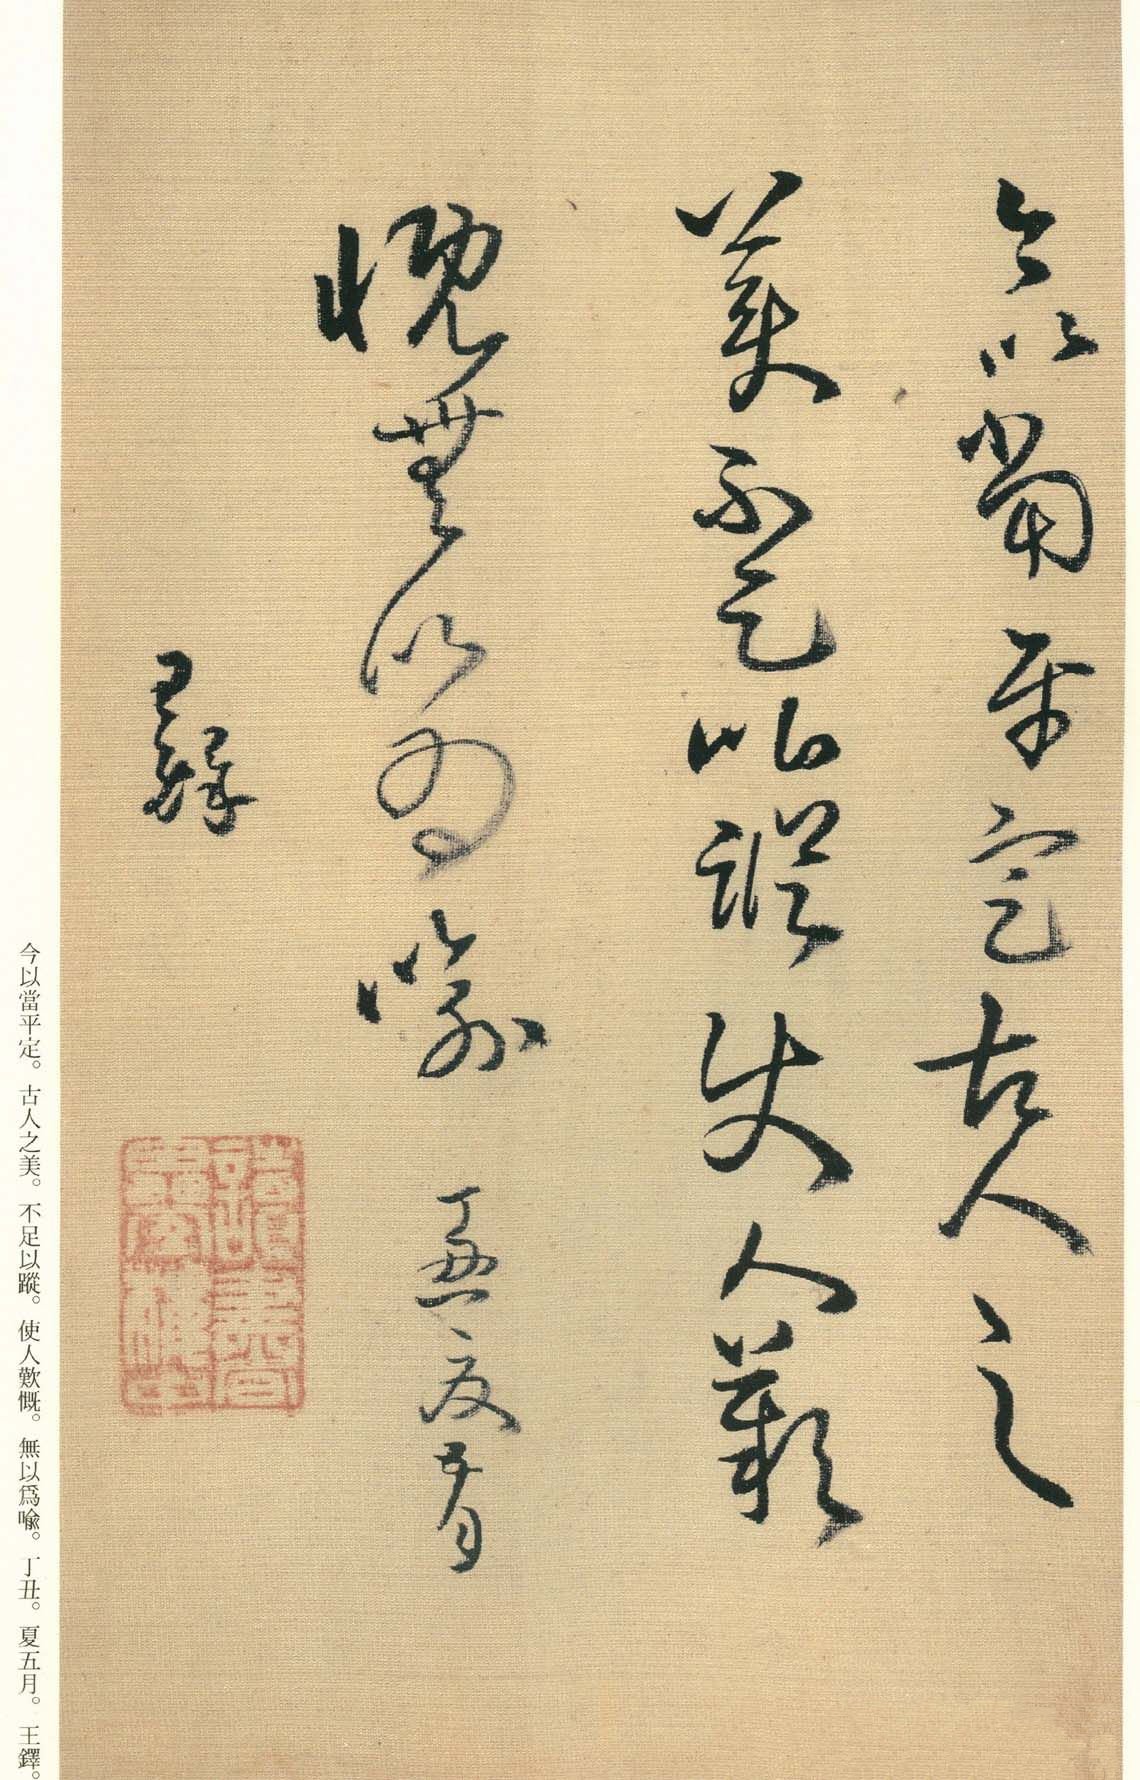 今以當平定古人之
美不足以蹤使人歎
慨無以爲喻丁丑夏五月
王鐸
今以當平定。古人之美。不足以蹤。使人歎慨。無以爲喻。丁丑。夏五月。王鐸。